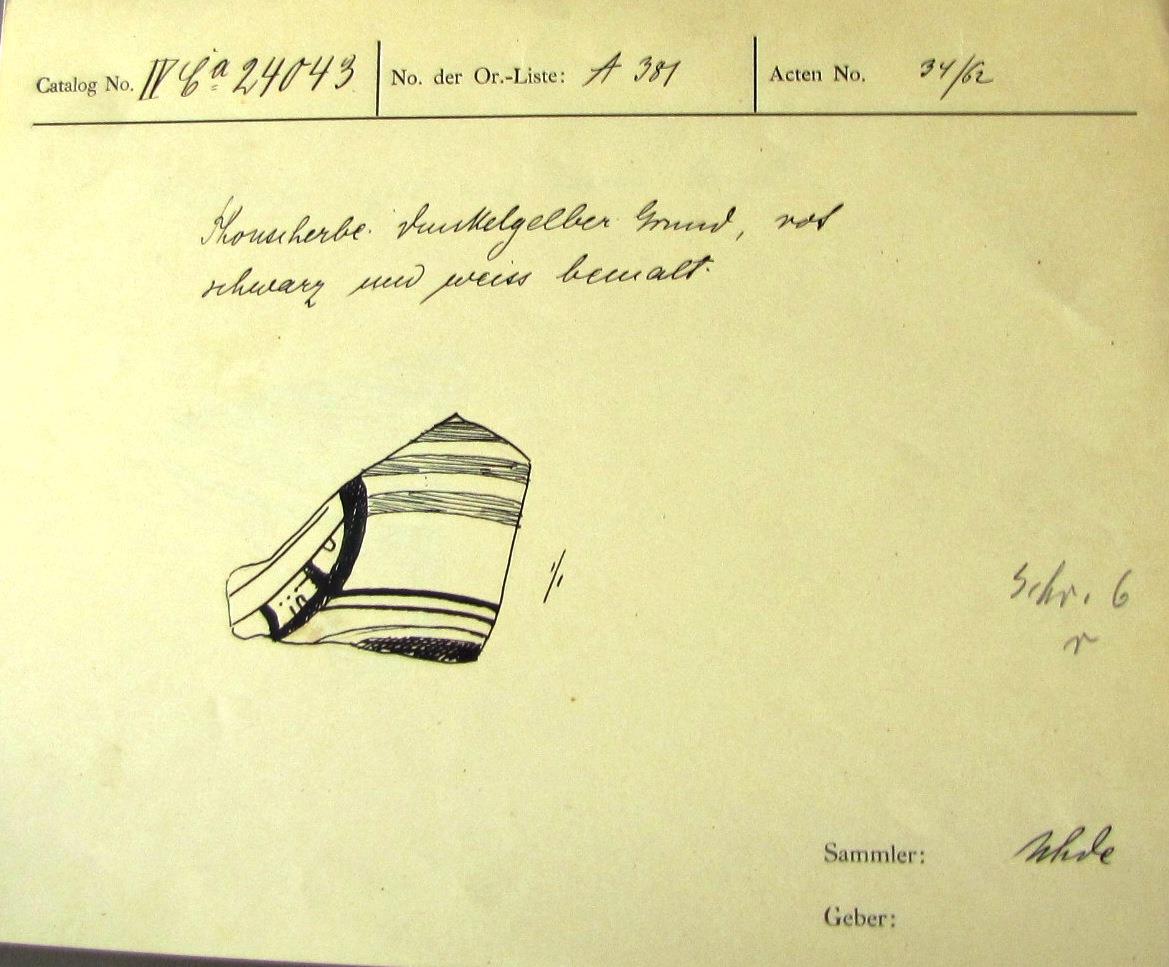 Catalog No. IV Ca 24043 No. der Or.-Liste: A 381 Acten No. 34/62
Thonscherbe. dunkelgelber Grund, rot
schwarz und weiss bemalt.
1/1
Schr. 6
r
Sammler: Uhde
Geber: